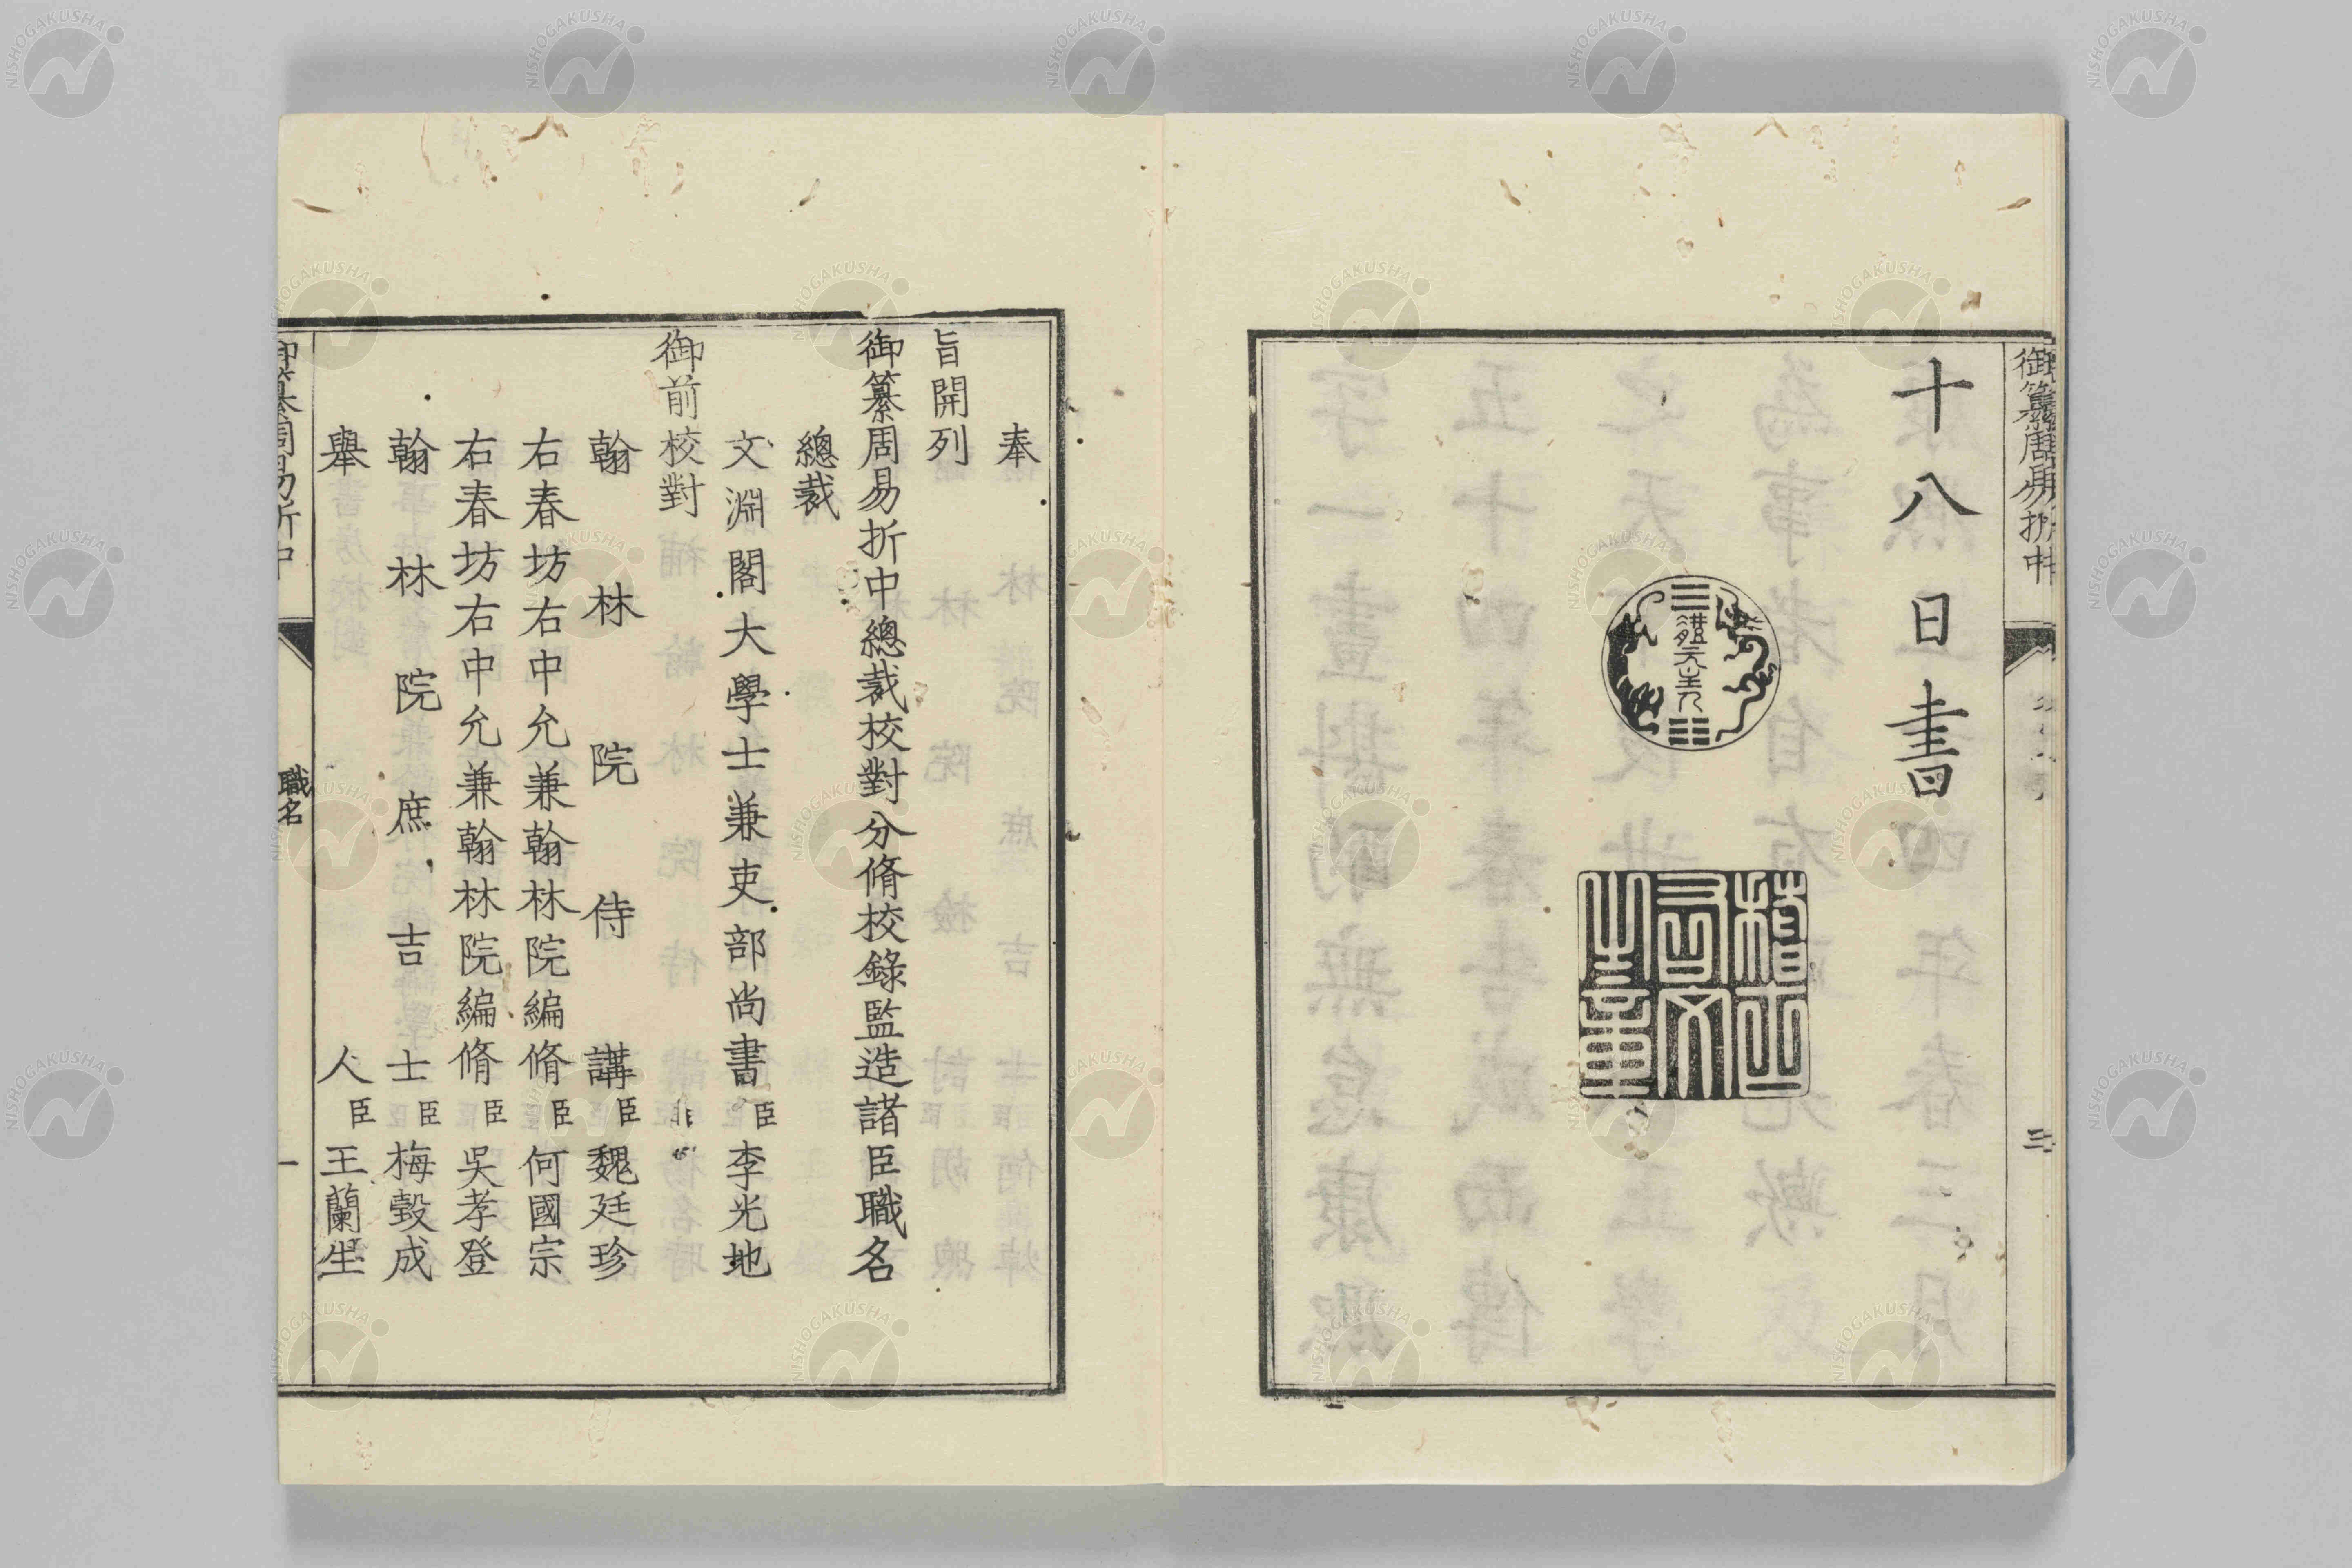 御纂周易折中
三
十八日書
體元主人
稽古右文之章
奉
旨開列
御纂周易折中總裁校對分脩校錄監造諸臣職名
總裁
文淵閣大學士兼吏部尚書臣李光地
御前校對
翰林院侍講臣魏廷珍
右春坊右中允兼翰林院編脩臣何國宗
右春坊右中允兼翰林院編脩臣吳孝登
翰林院庶吉士臣梅瑴成
舉人臣王蘭生
御纂周易折中
職名
一
NISHOGAKUSHA